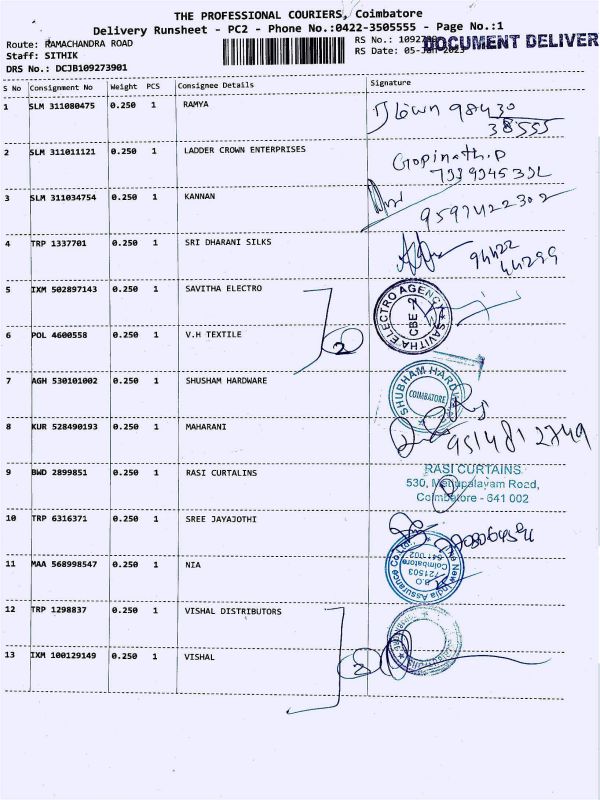 THE PROFESSIONAL COURIERS, Coimbatore
Delivery Runsheet - PC2 - Phone No.:0422-3505555 - Page No.:1
Route: RAMACHANDRA ROAD
RS No.: 1092
DOCUMENT DELIVER
Staff: SITHIK
RS Date: 05-Jun-2023
DRS No.: DCJB109273901
S No Consignment No Weight PCS Consignee Details Signature
1 SLM 311080475 0.250 1 RAMYA
98430
38555
2 SLM 311011121 0.250 1 LADDER CROWN ENTERPRISES
Gopinath.D
3 SLM 311034754 0.250 1 KANNAN
9597422302
4 TRP 1337701 0.250 1 SRI DHARANI SILKS
94422
44299
5 IXM 502897143 0.250 1 SAVITHA ELECTRO
SAVITHA ELECTRO AGENCY
CBE - 2
6 POL 4600558 0.250 1 V.H TEXTILE
2
7 AGH 530101002 0.250 1 SHUSHAM HARDWARE
SHUBHAM HARDW
COIMBATORE
8 KUR 528490193 0.250 1 MAHARANI
9514812749
9 BWD 2899851 0.250 1 RASI CURTALINS
RASI CURTAINS
530, Mettupalayam Road,
Coimbatore - 641 002
10 TRP 6316371 0.250 1 SREE JAYAJOTHI
11 MAA 568998547 0.250 1 NIA
The New India Assurance Co. Ltd.
B.O
721503
Coimbatore
641 002
12 TRP 1298837 0.250 1 VISHAL DISTRIBUTORS
13 IXM 100129149 0.250 1 VISHAL
2